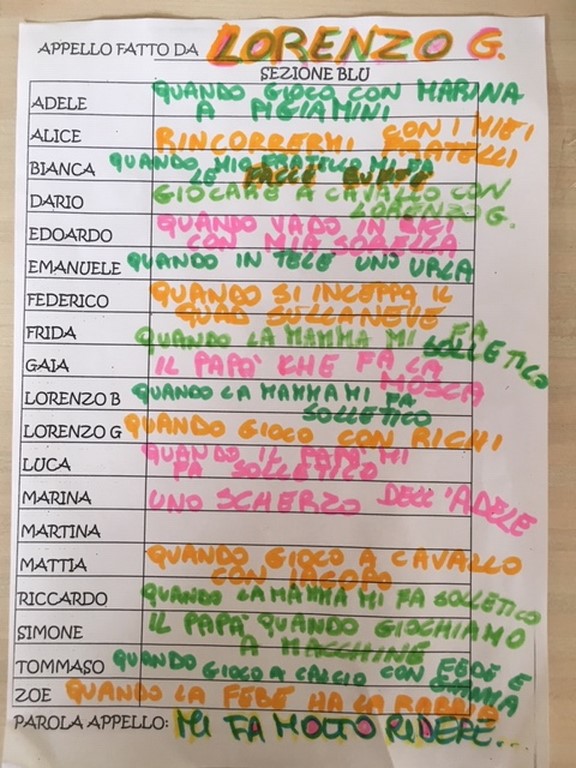 APPELLO FATTO DA LORENZO G.
SEZIONE BLU
ADELE QUANDO GIOCO CON MARINA
A PIGIAMINI
ALICE RINCORRERMI CON I MIEI
FRATELLI
BIANCA QUANDO MIO FRATELLO MI FA
LE FACCE BUFFE
DARIO GIOCARE A CAVALLO CON
LORENZO G.
EDOARDO QUANDO VADO IN BICI
CON MIA SORELLA
EMANUELE QUANDO IN TELE UNO URLA
FEDERICO QUANDO SI INCEPPA IL
QUAD SULLA NEVE
FRIDA QUANDO LA MAMMA MI FA
SOLLETICO
GAIA IL PAPA' CHE FA LA
MOSCA
LORENZO B QUANDO LA MAMMA MI FA
SOLLETICO
LORENZO G QUANDO GIOCO CON RICHI
LUCA QUANDO IL PAPA' MI
FA SOLLETICO
MARINA UNO SCHERZO DELL'ADELE
MARTINA
MATTIA QUANDO GIOCO A CAVALLO
CON IACOPO
RICCARDO QUANDO LA MAMMA MI FA SOLLETICO
SIMONE IL PAPA' QUANDO GIOCHIAMO
A MACCHINE
TOMMASO QUANDO GIOCO A CALCIO CON FEDE E
ZOE QUANDO LA FEDE HA LA RABBIA
PAROLA APPELLO: MI FA MOLTO RIDERE...